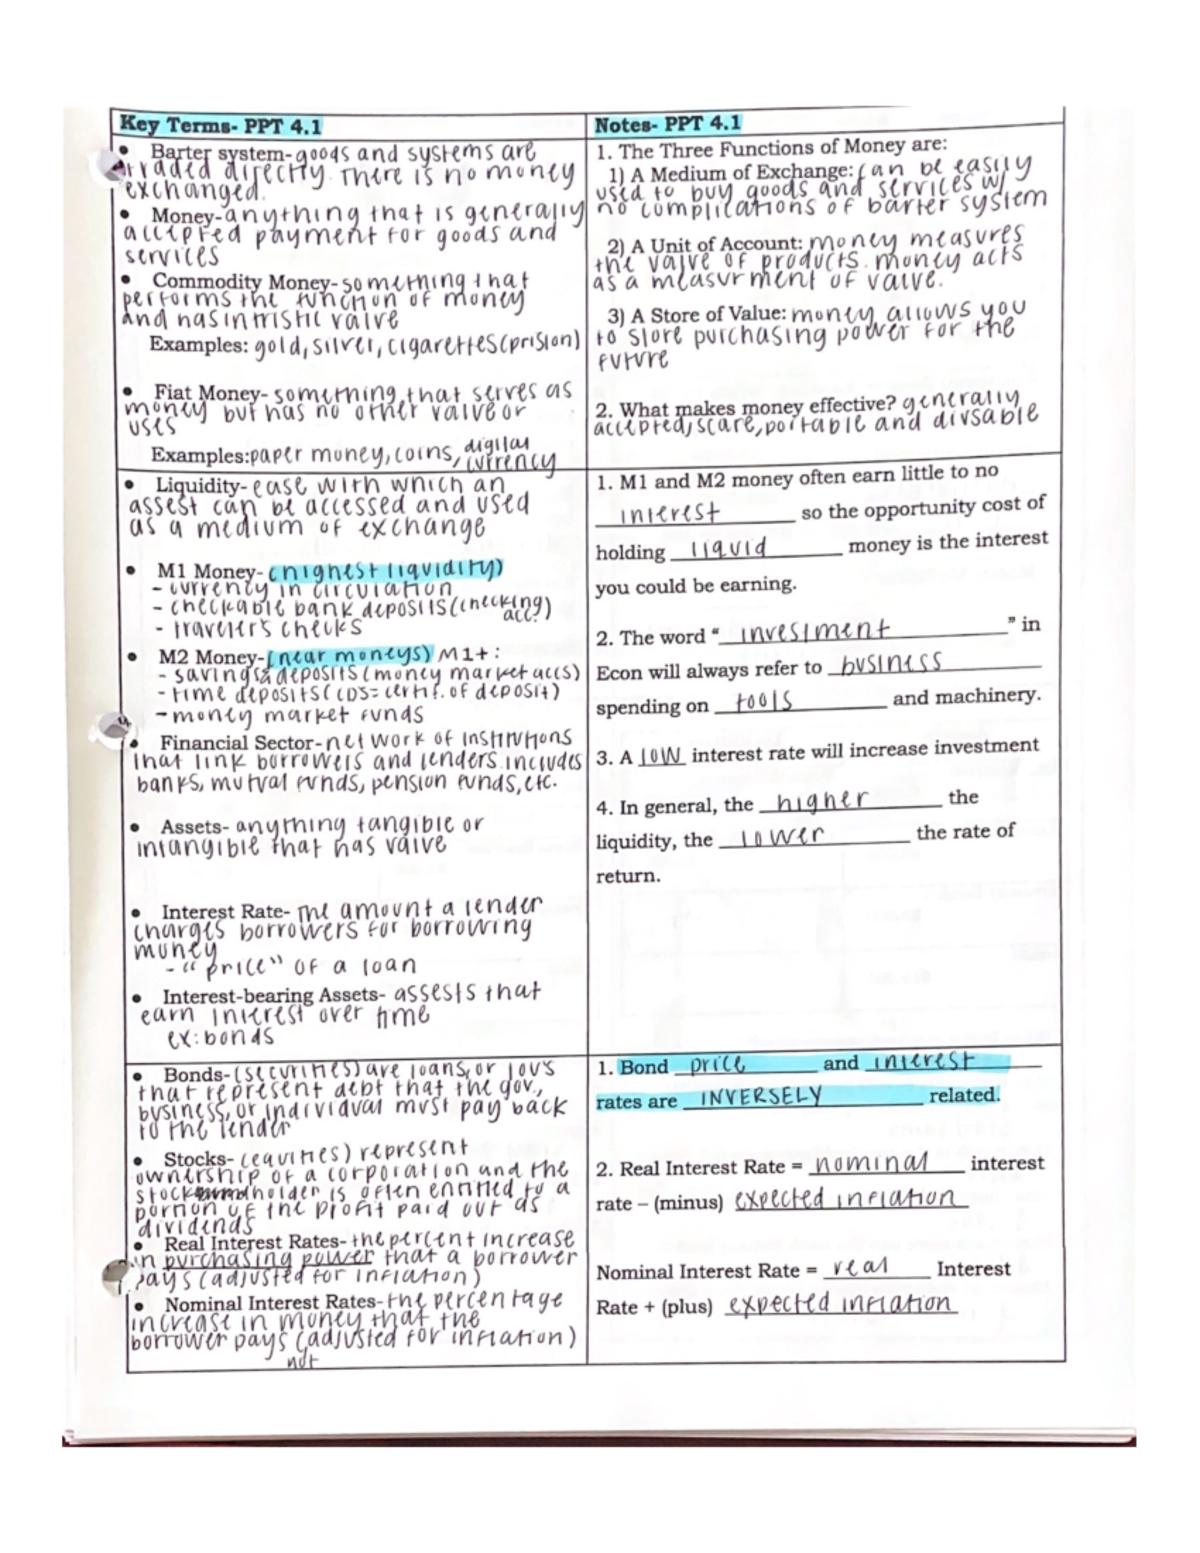 Key Terms- PPT 4.1
• Barter system- goods and systems are
traded directly. There is no money
exchanged.
• Money- anything that is generally
accepted payment for goods and
services
• Commodity Money- something that
performs the function of money
and has intristic value
Examples: gold, silver, cigarettes (prision)
• Fiat Money- something that serves as
money but has no other value or
uses
Examples: paper money, coins, digital
currency
Notes- PPT 4.1
1. The Three Functions of Money are:
1) A Medium of Exchange: can be easily
used to buy goods and services w/
no complications of barter system
2) A Unit of Account: money measures
the value of products. money acts
as a measurment of value.
3) A Store of Value: money allows you
to store purchasing power for the
future
2. What makes money effective? generally
accepted, scare, portable and divsable
• Liquidity- ease with which an
assest can be accessed and used
as a medium of exchange
• M1 Money- (highest liquidity)
- currency in circulation
- checkable bank deposits (checking
acc.)
- traveler's checks
• M2 Money- (near moneys) M1+:
- savings deposits (money market accs)
- time deposits (CDs = certif. of deposit)
- money market funds
• Financial Sector- network of institutions
that link borrowers and lenders. includes
banks, mutual funds, pension funds, etc.
• Assets- anything tangible or
intangible that has value
• Interest Rate- the amount a lender
charges borrowers for borrowing
money
- "price" of a loan
• Interest-bearing Assets- assests that
earn interest over time
ex: bonds
1. M1 and M2 money often earn little to no
interest so the opportunity cost of
holding liquid money is the interest
you could be earning.
2. The word "investment" in
Econ will always refer to business
spending on tools and machinery.
3. A low interest rate will increase investment
4. In general, the higher the
liquidity, the lower the rate of
return.
• Bonds- (securities) are loans, or IOU's
that represent debt that the gov.,
business, or individual must pay back
to the lender
• Stocks- (equities) represent
ownership of a corporation and the
stockholder is often entitled to a
portion of the profit paid out as
dividends
• Real Interest Rates- the percent increase
in purchasing power that a borrower
pays (adjusted for inflation)
• Nominal Interest Rates- the percentage
increase in money that the
borrower pays (adjusted for inflation)
not
1. Bond price and interest
rates are INVERSELY related.
2. Real Interest Rate = nominal interest
rate – (minus) expected inflation
Nominal Interest Rate = real Interest
Rate + (plus) expected inflation